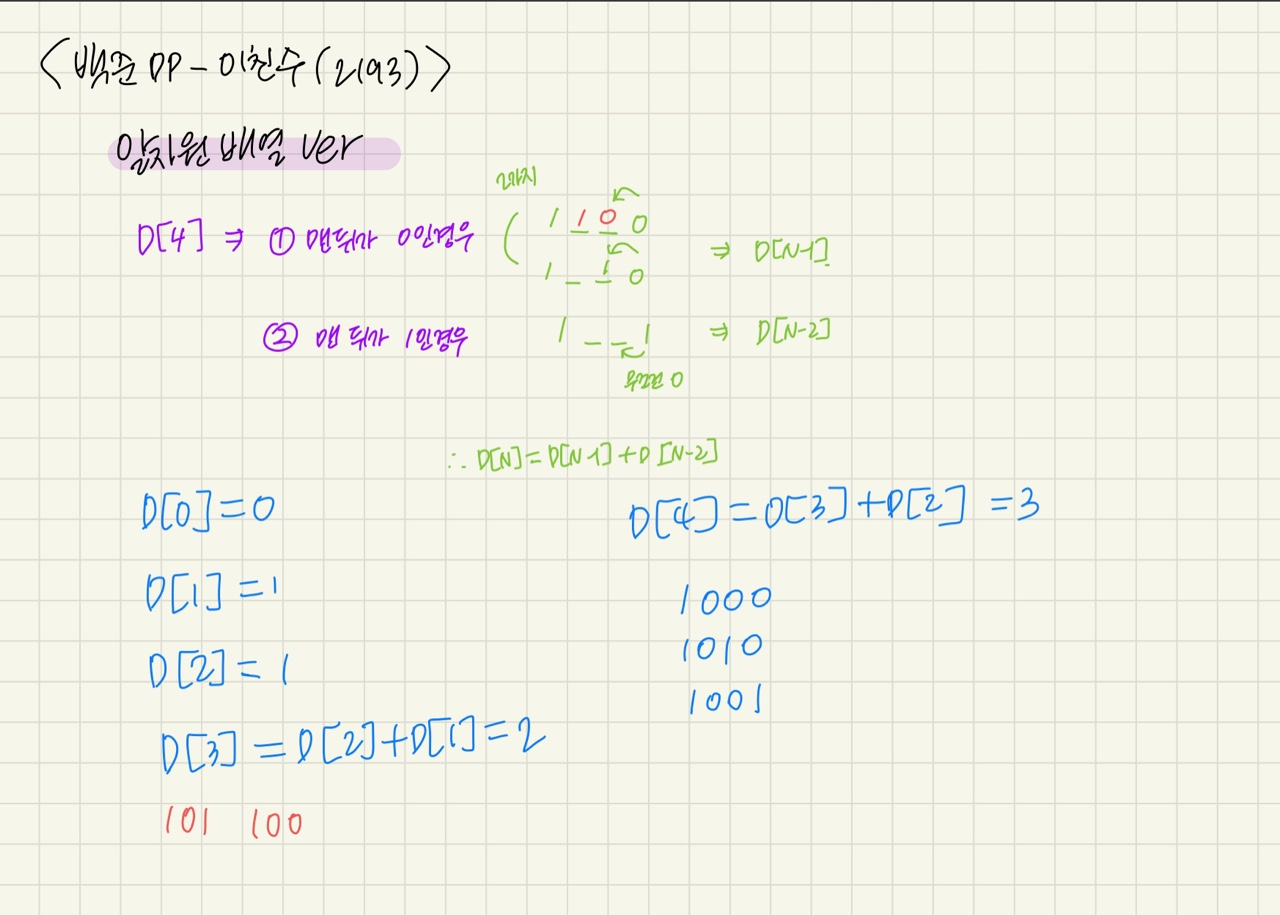 <백준 DP - 이친수(2193)>
일차원 배열 ver
2가지
D[4] ⇒ ① 맨뒤가 0인경우 ( 1 1 0 0
1 _ 1 0
⇒ D[N-1]
② 맨 뒤가 1인경우 1 _ _ 1 ⇒ D[N-2]
무조건 0
∴ D[N]=D[N-1]+D[N-2]
D[0]=0
D[4]=D[3]+D[2]=3
D[1]=1
1000
1010
D[2]=1
1001
D[3]=D[2]+D[1]=2
101 100